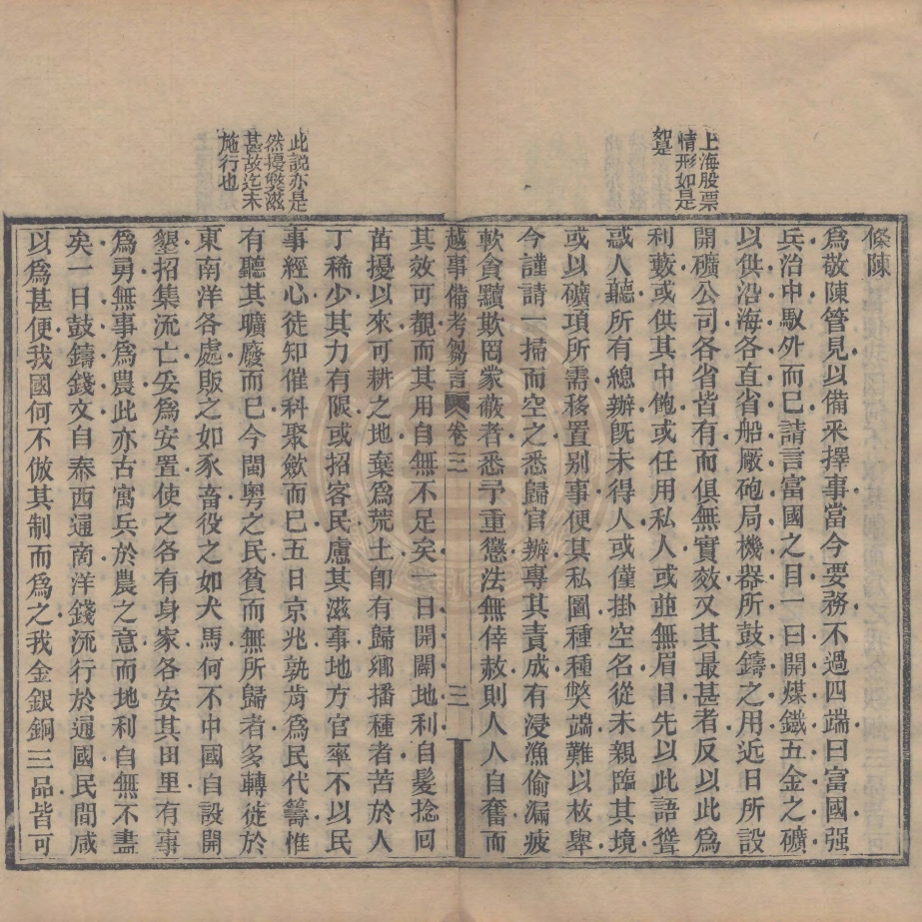 上海股票
情形如是
如是
條陳
爲敬陳管見以備釆擇事當今要務不過四端曰富國强
兵治中馭外而已請言富國之目一曰開煤鐵五金之礦
以供沿海各直省船厰砲局機器所鼓鑄之用近日所設
開礦公司各省皆有而俱無實效又其最甚者反以此爲
利藪或供其中飽或任用私人或並無眉目先以此語聳
惑人聽所有總辦旣未得人或僅掛空名從未親臨其境
或以礦項所需移置别事便其私圖種種獘端難以枚舉
今謹請一掃而空之悉歸官辦專其責成有浸漁偷漏疲
軟貪黷欺罔蒙蔽者悉予重懲法無倖赦則人人自奮而
越事備考芻言 卷三 三
此説亦是
然擾獘滋
甚故迄未
施行也
其效可觀而其用自無不足矣一曰開闢地利自髮捻回
苗擾以來可耕之地棄爲荒土卽有歸鄉播種者苦於人
丁稀少其力有限或招客民慮其滋事地方官率不以民
事經心徒知催科聚歛而已五日京兆孰肯爲民代籌惟
有聽其曠廢而已今閩粤之民貧而無所歸者多轉徙於
東南洋各處販之如豕畜役之如犬馬何不中國自設開
墾招集流亡妥爲安置使之各有身家各安其田里有事
爲勇無事爲農此亦古寓兵於農之意而地利自無不盡
矣一日鼓鑄錢文自泰西通南洋錢流行於通國民間咸
以爲甚便我國何不倣其制而爲之我金銀銅三品皆可